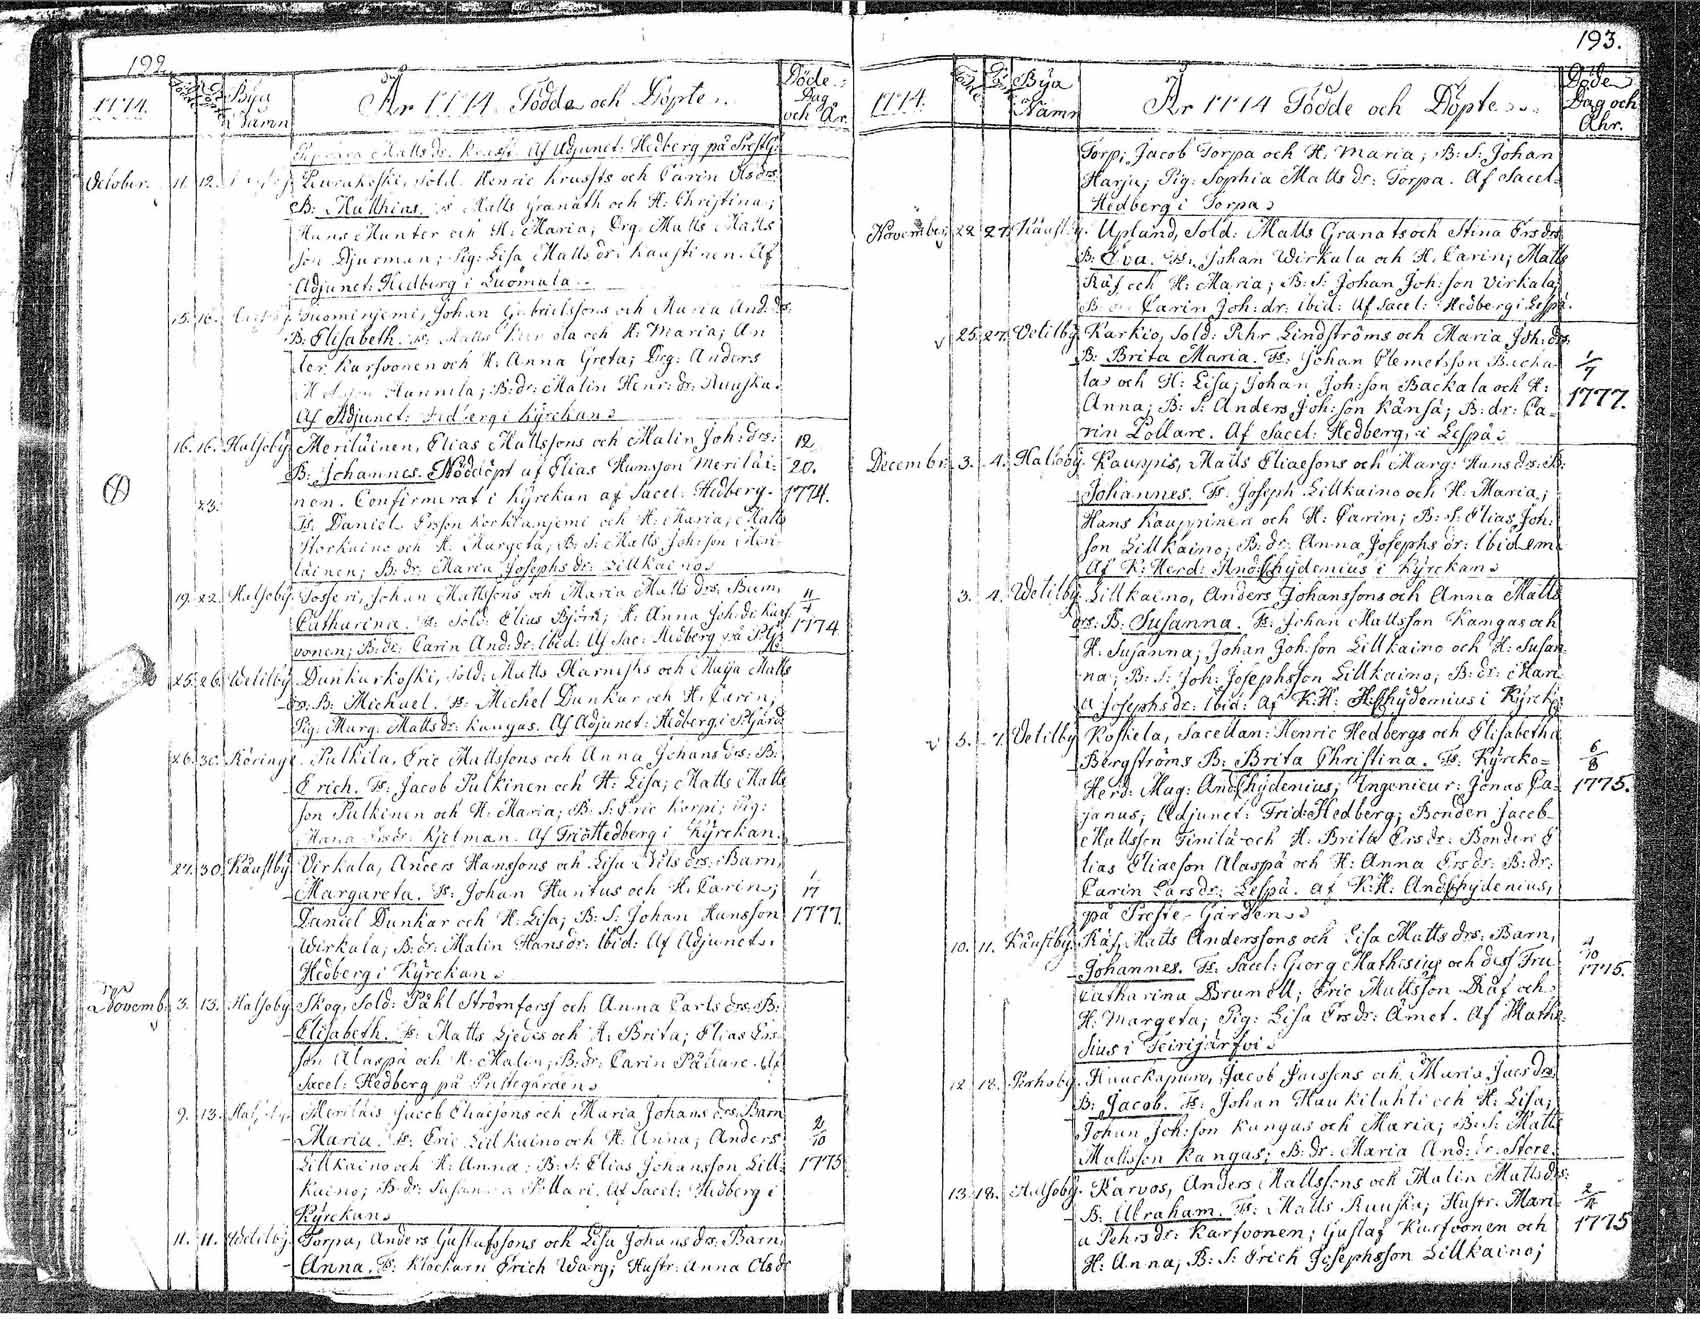 192.
1774.
Födde
Döpte
Býa Namn
År 1774 Födde och Döpte.
Döde Dag och År.
Matts dr. Af Adjunct: Hedberg på
October. 11. 12. Sold. Henric Krusfts och Carin Ols drs:
B: Matthias. Fs: Matts Granath och H: Christina;
Hans Hunter och H: Maria; Drg: Matts Matts
son Djurman; Pig: Lisa Matts dr: Kaustinen. Af
Adjunct: Hedberg i Luomala.
15. 16. Johan Gabrielssons och Maria And: drs:
B: Elisabeth. Fs: Matts och H: Maria; An
ders Karfvonen och H: Anna Greta; Drg: Anders
Hannila; B: dr: Malin Henr: dr: Ruuska.
Af Adjunct: Hedberg i Kyrckan.
16. 16. Halsoby. Meriläinen, Elias Mattssons och Malin Joh: drs: 12
B: Johannes. Nöddöpt af Elias Hansson Meriläi- 20.
nen. Confirmerat i Kyrckan af Sacel: Hedberg. 1774.
23.
Fs: Daniel Ersson och H: Maria; Matts
Storkaino och H: Margeta; B: S: Matts Joh: son Meri
läinen; B: dr: Maria Josephs dr: Lillkaino.
19. 22. Halsoby. Tofferi, Johan Mattssons och Maria Matts drs: Barn, 11
Catharina. Fs: Sold: Elias Björn; H: Anna Joh: dr: Karf
vonen; B: dr: Carin And: dr: Ibid: Af Sac: Hedberg på 1774
25. 26. Wetilby. Dunkarkoski, Sold: Matts Harnesks och Maija Matts
drs: B: Michael. Fs: Michel Dunkar och H: Carin;
Pig: Marg: Matts dr: Kangas. Af Adjunct: Hedberg i P:gård
26. 30. Köringe. Pulkila, Eric Mattssons och Anna Johans drs: B:
Erich. Fs: Jacob Pulkinen och H: Lisa; Matts Matts
son Pulkinen och H: Maria; B: S: Eric Korpi; Pig:
Maria Ersdr: Kjelman. Af Frid Hedberg i Kyrckan.
27. 30. Käustby. Virkala, Anders Hanssons och Lisa Nils drs: Barn, 1
Margareta. Fs: Johan Huntus och H: Carin; 17
Daniel Dunkar och H: Lisa; B: S: Johan Hansson 1777.
Wirkala; B: dr: Malin Hans dr: Ibid: Af Adjunct:
Hedberg i Kyrckan.
Novemb: 3. 13. Halsoby. Skog, Sold: Påhl Strömforss och Anna Carls drs: B:
Elisabeth. Fs: Matts Ljedes och H: Brita; Elias Ers
son Alaspä och H: Malin; B: dr: Carin Pållare. Af
Sacel: Hedberg på Prästegården.
9. 13. Halsoby. Meriläis Jacob Eliaesons och Maria Johans drs: Barn
Maria. Fs: Eric Lillkaino och H: Anna; Anders 2/10
Lillkaino och H: Anna; B: S: Elias Johansson Lill- 1775
kaino; B: dr: Susanna Pollari. Af Sacel: Hedberg i
Kyrckan.
11. 11. Wetilby. Torpa, Anders Gustafssons och Lisa Johans drs: Barn,
Anna. Fs: Klockarn Erich Warg; Hustr: Anna Ols dr
193.
1774.
Födde
Döpte
Býa Namn
År 1774 Födde och Döpte.
Döde Dag och Åhr.
Torp; Jacob Torpa och H: Maria; B: S: Johan
Harju; Pig: Sophia Matts dr: Torpa. Af Sacel:
Hedberg i Torpa.
November 22 27. Käustby. Upland, Sold: Matts Granats och Stina Ers drs:
B: Eva. Fs: Johan Wirkala och H: Carin; Matts
Räf och H: Maria; B: S: Johan Joh: son Virkala;
B: dr: Carin Joh: dr: Ibid: Af Sacel: Hedberg i Lespä.
25. 27. Vetilby. Karkio, Sold: Pehr Lindströms och Maria Joh: drs:
B: Brita Maria. Fs: Johan Clemetsson Backa- 1/7
la och H: Lisa; Johan Joh: son Backala och H: 1777.
Anna; B: S: Anders Joh: son Känsä; B: dr: Ca-
rin Pollare. Af Sacel: Hedberg, i Lespä.
Decembr: 3. 4. Halsoby. Kauppis, Matts Eliaesons och Marg: Hans drs: B:
Johannes. Fs: Joseph Lillkaino och H: Maria;
Hans Kauppinen och H: Carin; B: S: Elias Joh:
son Lillkaino; B: dr: Anna Josephs dr: Ibidem.
Af K: Herd: And: Chydenius i Kyrckan.
3. 4. Wetilby. Lillkaino, Anders Johanssons och Anna Matts
drs: B: Susanna. Fs: Johan Mattsson Kangas och
H: Susanna; Johan Joh: son Lillkaino och H: Susan-
na; B: S: Joh: Josephsson Lillkaino; B: dr: Mari
a Josephs dr: Ibid: Af K: H: Chydenius i Kyrck:
5. 7. Vetilby. Koskela, Sacellan: Henric Hedbergs och Elisabetha
Bergströms B: Brita Christina. Fs: Kyrcko- 6/8
Herd: Mag: And: Chydenius; Ingenieur: Jonas Ca- 1775.
janus; Adjunct: Frid: Hedberg; Bonden Jacob
Mattsson Finilä och H: Brita Ers dr: Bonden E
lias Eliaeson Alaspä och H: Anna Ers dr: B: dr:
Carin Lars dr: Lespä. af K: H: And: Chydenius,
på Preste-Gården.
10. 11. Käustby. Räf, Matts Anderssons och Lisa Matts drs: Barn, 4/10
Johannes. Fs: Sacel: Georg Mathesius och dess Fru 1775.
Catharina Brunell; Eric Mattsson Räf och
H: Margeta; Pig: Lisa Ers dr: Åmet. Af Mathe-
sius i Teirijärfvi.
12. 18. Perhoby. Jacob Jacssons och Maria Jacs drs:
B: Jacob. Fs: Johan Haukilahti och H: Lisa;
Johan Joh: son Kangas och Maria; B: S: Matts
Mattsson Kangas; B: dr: Maria And: dr: Store.
13. 18. Halsoby. Karvos, Anders Mattssons och Malin Matts drs:
B: Abraham. Fs: Matts Ruuska; Hustr: Mari-
a Pehrs dr: Karfvonen; Gustaf Karfvonen och 1775
H: Anna; B: S: Erich Josephsson Lillkaino;